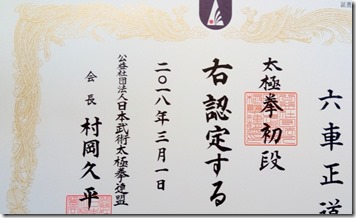 証書
六車正道
太極拳初段
右認定する
二〇一八年三月一日
公益社団法人日本武術太極拳連盟
会長 村岡久平